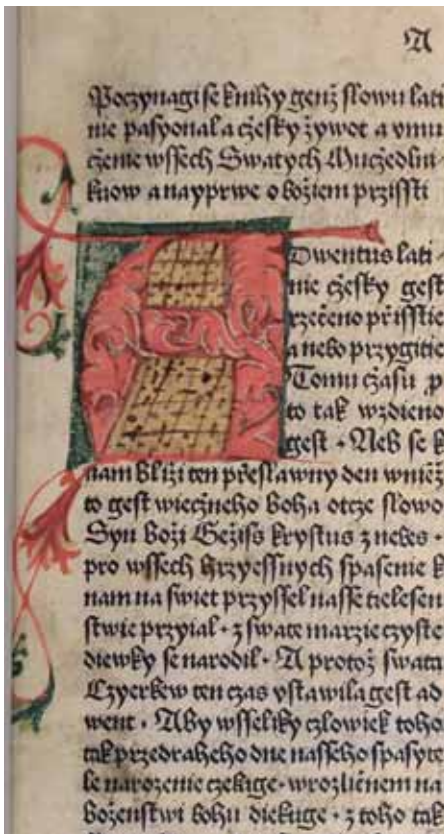 A
Poczynagi se knihy genž slowu lati
nie pasyonal a cžesky žywot a vmu
cženie wssech Swatych Muczedlni-
kuow a nayprwe o božiem przissti
Adwentus lati-
nie cžesky gest
rzečeno přisstie
a nebo przygitie
Tomu cžasu p
to tak wzdieno
gest · Neb se k
nam bližij ten přeslawny den wniež
to gest wiecžneho boha otcze slowo
Syn boži Gežiss krystus z nebes ·
pro wssech hrzyessnych spasenie k
nam na swiet przyssel nasse tielesen
stwie przyial · z swate marzie czyste
diewky se narodil · A protož swata
Czyerkew ten czas vstawila gest ad
went · Aby wsseliky czlowiek toho
tak przedraheho dne nasseho spasyte
le narozenie czekage · w rozličnem na
boženstwi bohu diekuge · z toho tak